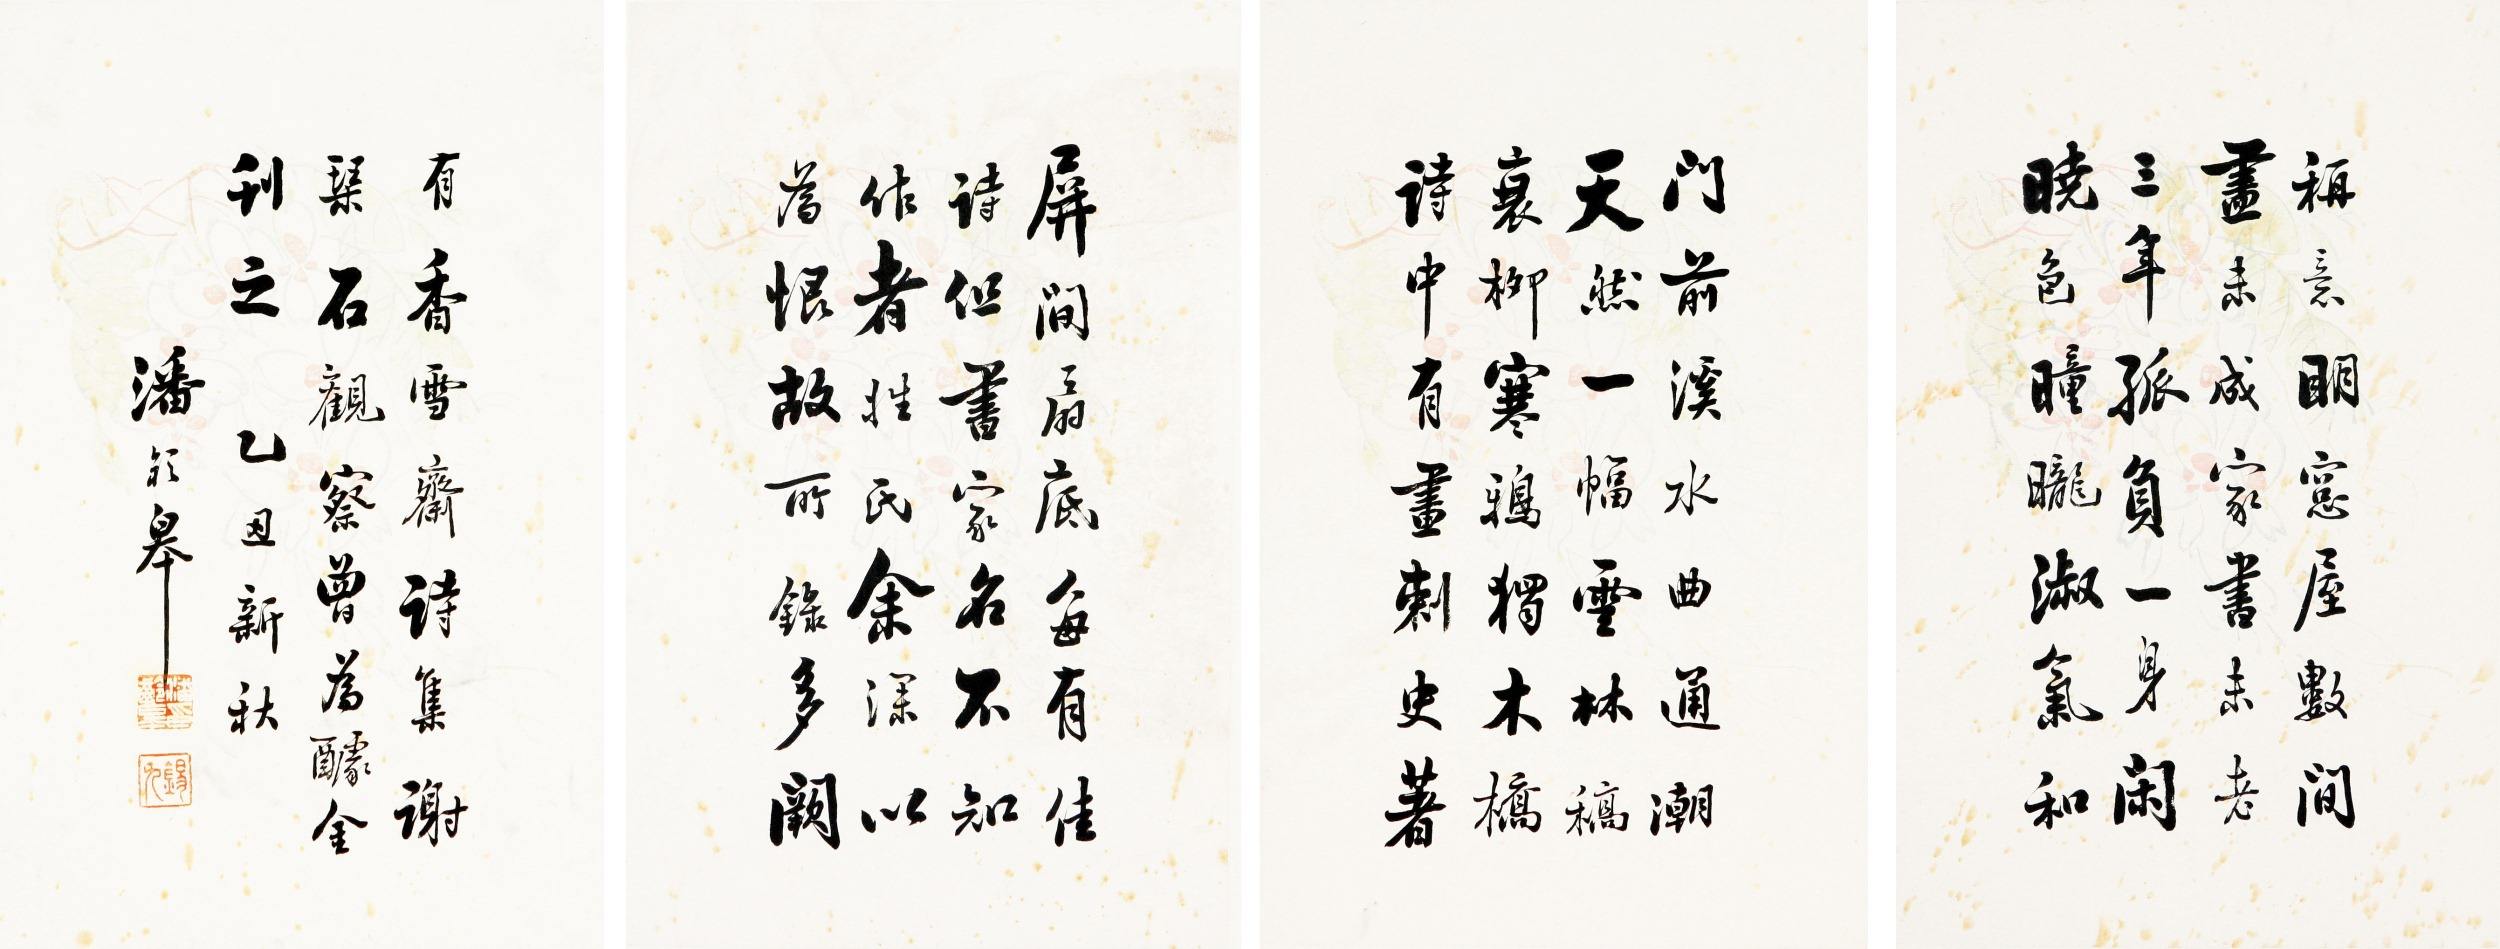 稱意明窓屋數間
畫未成家書未老
三年孤負一身閑
曉色曈曨淑氣和
門前溪水曲通潮
天然一幅雲林稿
衰柳寒鴉獨木橋
詩中有畫刺史著
屏間扇底每有佳
詩但書家名不知
作者姓氏余深以
為恨故所錄多闕
有香雪齋詩集謝
琹石觀察曾為醵金
刊之 乙丑新秋
潘齡皋
錫九